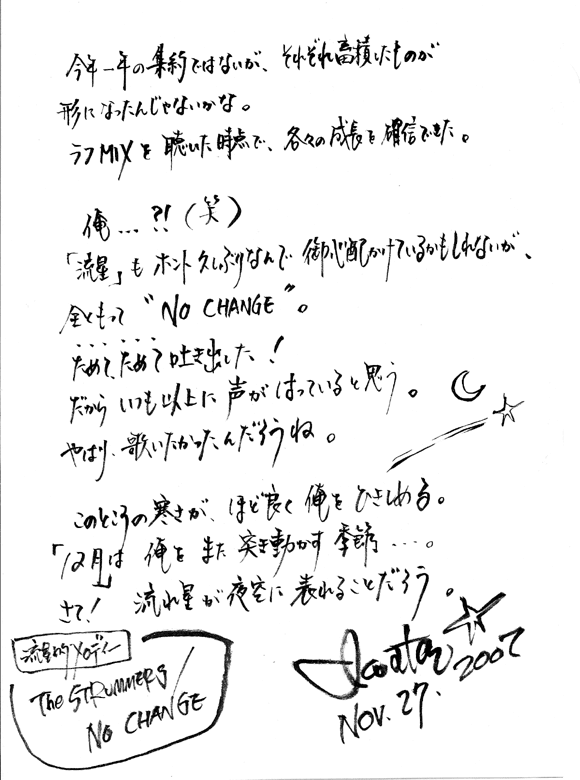 今年一年の集約ではないが、それぞれ蓄積したものが
形になったんじゃないかな。
ラフMIXを聴いた時点で、各々の成長を確信できた。
俺...?!(笑)
「流星」もホント久しぶりなんで御心配かけているかもしれないが、
全くもって“NO CHANGE”。
ためて、ためて吐き出した!
だからいつも以上に声がはっていると思う。
やはり、歌いたかったんだろうね。
このところの寒さが、ほど良く俺をひきしめる。
「12月」は俺をまた突き動かす季節...。
さて!流れ星が夜空に表れることだろう。
流星的メロディー
The STRUMMERS/
NO CHANGE
2007
NOV.27.